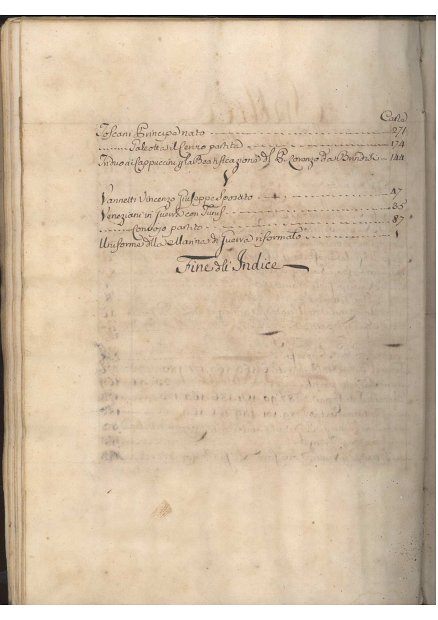 Carta
Toscani Principe nato 271
Paleotta del Censo partita 174
Triduo ai Cappuccini p la Beatificazione del B. Lorenzo da Brindisi 144
V
Vannetti Vincenzo Giuseppe 47
Veneziani in guerra con Tunisi 35
Convoio partito 87
Uniforme della Marina di Guerra riformato 1
Fine dell Indice